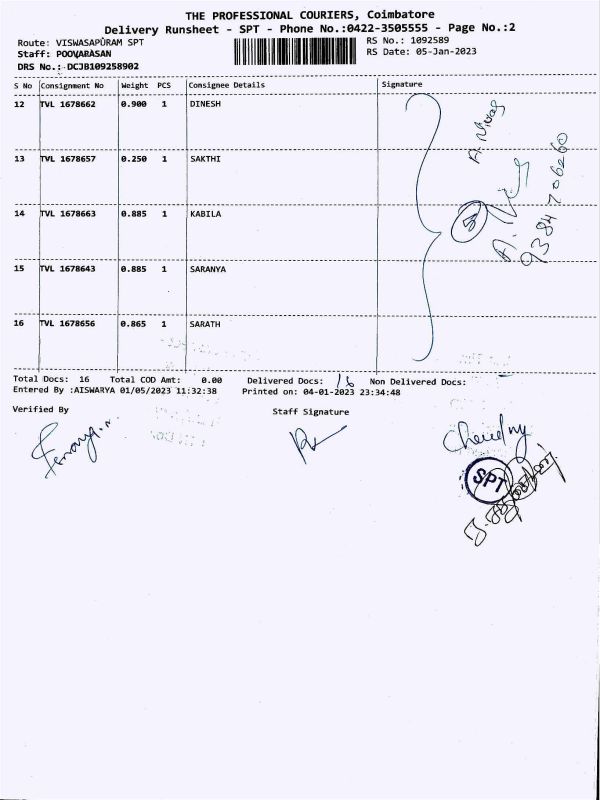 THE PROFESSIONAL COURIERS, Coimbatore
Delivery Runsheet - SPT - Phone No.:0422-3505555 - Page No.:2
Route: VISWASAPURAM SPT
RS No.: 1092589
Staff: POOVARASAN
RS Date: 05-Jan-2023
DRS No.: DCJB109258902
S No Consignment No Weight PCS Consignee Details Signature
12 TVL 1678662 0.900 1 DINESH
13 TVL 1678657 0.250 1 SAKTHI
14 TVL 1678663 0.885 1 KABILA
15 TVL 1678643 0.885 1 SARANYA
16 TVL 1678656 0.865 1 SARATH
A. Nivas
5
9384706260
Total Docs: 16 Total COD Amt: 0.00 Delivered Docs: 16 Non Delivered Docs:
Entered By :AISWARYA 01/05/2023 11:32:38 Printed on: 04-01-2023 23:34:48
Verified By Staff Signature
SPT